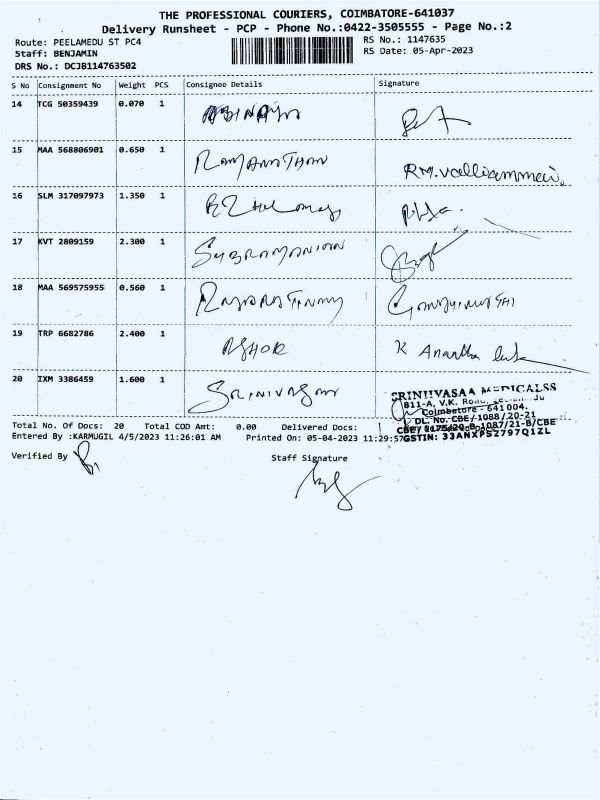 THE PROFESSIONAL COURIERS, COIMBATORE-641037
Delivery Runsheet - PCP - Phone No.:0422-3505555 - Page No.:2
Route: PEELAMEDU ST PC4
RS No.: 1147635
Staff: BENJAMIN
RS Date: 05-Apr-2023
DRS No.: DCJB114763502
S No Consignment No Weight PCS Consignee Details Signature
14 TCG 50359439 0.070 1 ABINAYA
15 MAA 568806901 0.650 1 RAMANATHAN RM.valliammai.
16 SLM 317097973 1.350 1
17 KVT 2809159 2.300 1 SUBRAMANIAN
18 MAA 569575955 0.560 1
19 TRP 6682786 2.400 1 ASHOK K Anantha
20 IXM 3386459 1.600 1 SRINIVASAN
SRINIIVASAA MEDICALSS
811-A, V.K. Road,
Coimbatore - 641 004.
DL. No. CBE/1088/20-21
Total No. Of Docs: 20 Total COD Amt: 0.00 Delivered Docs:
Entered By :KARMUGIL 4/5/2023 11:26:01 AM Printed On: 05-04-2023 11:29:57
GSTIN: 33ANXPS2797Q1ZL
Verified By
Staff Signature